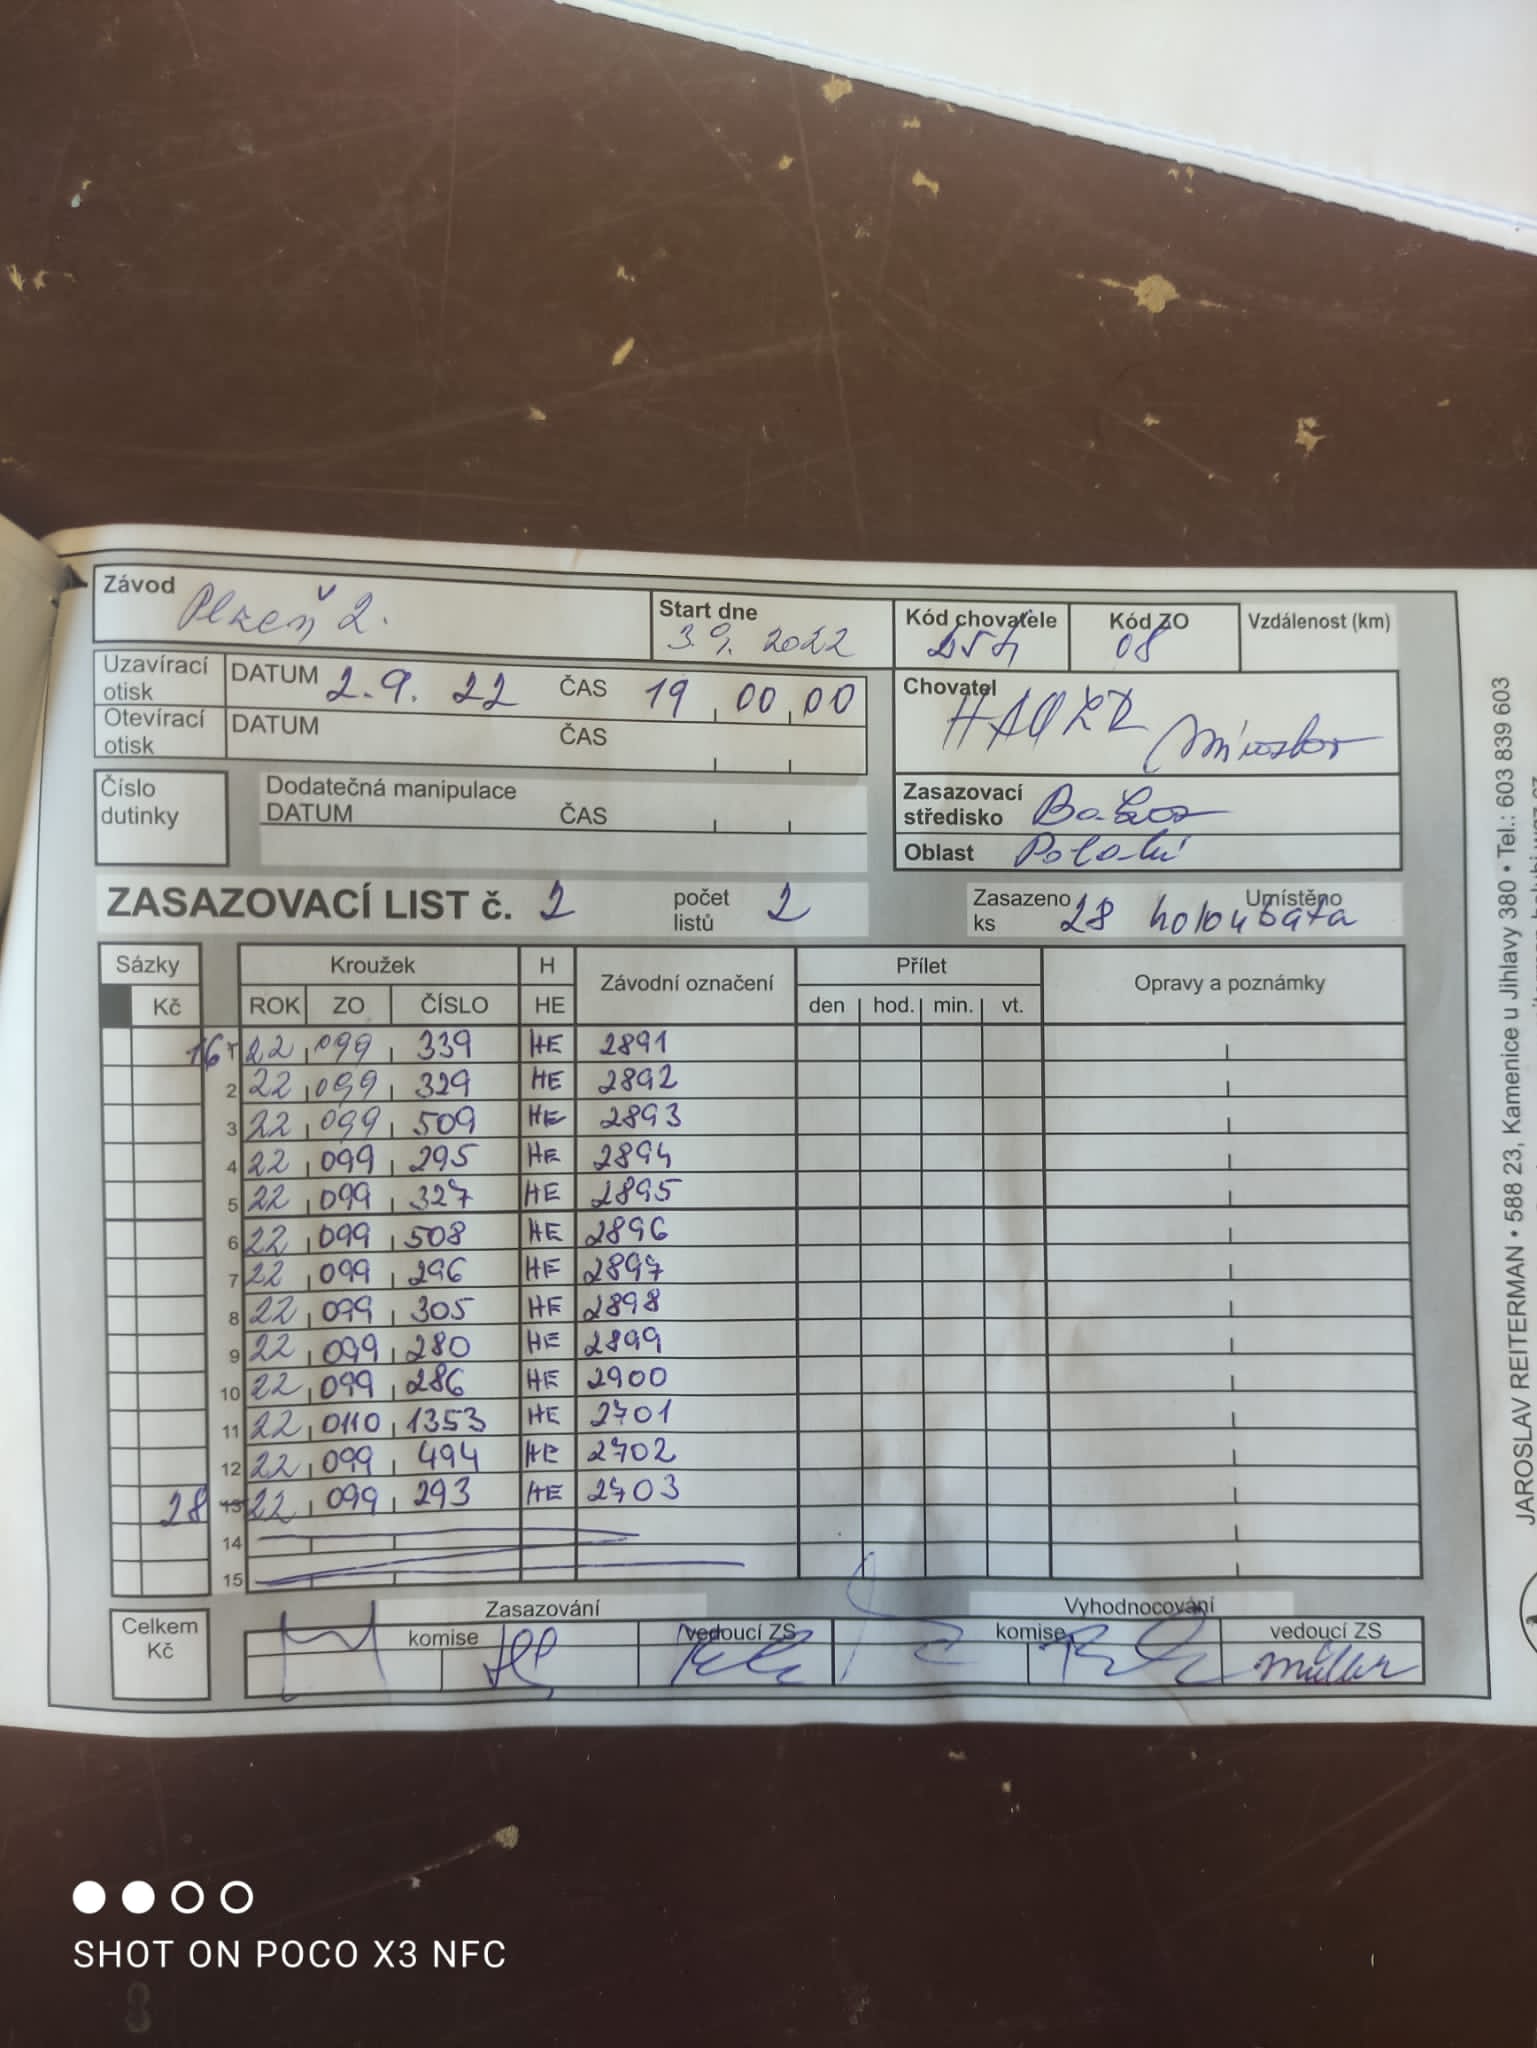 Závod Plzeň 2.
Start dne 3.9. 2022
Kód chovatele
Kód ZO 08
Vzdálenost (km)
Uzavírací otisk DATUM 2.9. 22 ČAS 19 00 00
Otevírací otisk DATUM ČAS
Chovatel Miroslav
Číslo dutinky
Dodatečná manipulace
DATUM ČAS
Zasazovací středisko
Oblast
ZASAZOVACÍ LIST č. 2 počet listů 2
Zasazeno ks 28 holoubata Umístěno
Sázky Kroužek H Závodní označení Přílet Opravy a poznámky
Kč ROK ZO ČÍSLO HE den hod. min. vt.
16 22 099 339 HE 2891
2 22 099 329 HE 2892
3 22 099 509 HE 2893
4 22 099 295 HE 2894
5 22 099 327 HE 2895
6 22 099 508 HE 2896
7 22 099 296 HE 2897
8 22 099 305 HE 2898
9 22 099 280 HE 2899
10 22 099 286 HE 2900
11 22 0110 1353 HE 2701
12 22 099 494 HE 2702
28 13 22 099 293 HE 2703
14
15
Celkem Kč
Zasazování Vyhodnocování
komise vedoucí ZS komise vedoucí ZS
Müller
JAROSLAV REITERMAN • 588 23, Kamenice u Jihlavy 380 • Tel.: 603 839 603
SHOT ON POCO X3 NFC